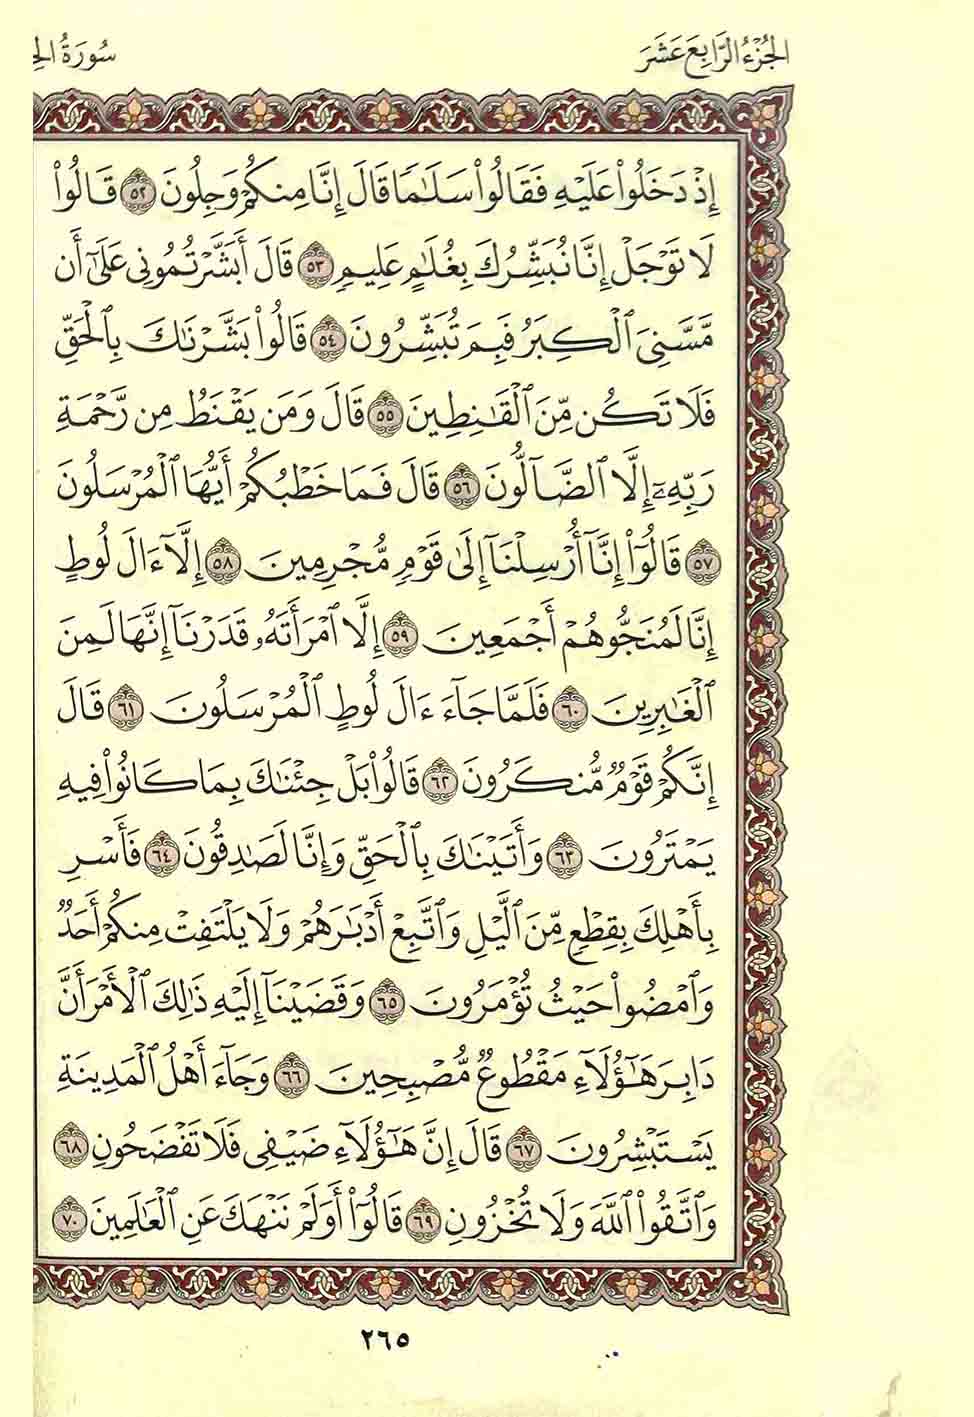 الجُزْءُ الرَّابِعَ عَشَرَ
سُورَةُ الحِ
إِذْ دَخَلُوا۟ عَلَيْهِ فَقَالُوا۟ سَلَـٰمًا قَالَ إِنَّا مِنكُمْ وَجِلُونَ ٥٢ قَالُوا۟
لَا تَوْجَلْ إِنَّا نُبَشِّرُكَ بِغُلَـٰمٍ عَلِيمٍ ٥٣ قَالَ أَبَشَّرْتُمُونِى عَلَىٰٓ أَن
مَّسَّنِىَ ٱلْكِبَرُ فَبِمَ تُبَشِّرُونَ ٥٤ قَالُوا۟ بَشَّرْنَـٰكَ بِٱلْحَقِّ
فَلَا تَكُن مِّنَ ٱلْقَـٰنِطِينَ ٥٥ قَالَ وَمَن يَقْنَطُ مِن رَّحْمَةِ
رَبِّهِۦٓ إِلَّا ٱلضَّآلُّونَ ٥٦ قَالَ فَمَا خَطْبُكُمْ أَيُّهَا ٱلْمُرْسَلُونَ
٥٧ قَالُوٓا۟ إِنَّآ أُرْسِلْنَآ إِلَىٰ قَوْمٍ مُّجْرِمِينَ ٥٨ إِلَّآ ءَالَ لُوطٍ
إِنَّا لَمُنَجُّوهُمْ أَجْمَعِينَ ٥٩ إِلَّا ٱمْرَأَتَهُۥ قَدَّرْنَآ إِنَّهَا لَمِنَ
ٱلْغَـٰبِرِينَ ٦٠ فَلَمَّا جَآءَ ءَالَ لُوطٍ ٱلْمُرْسَلُونَ ٦١ قَالَ
إِنَّكُمْ قَوْمٌ مُّنكَرُونَ ٦٢ قَالُوا۟ بَلْ جِئْنَـٰكَ بِمَا كَانُوا۟ فِيهِ
يَمْتَرُونَ ٦٣ وَأَتَيْنَـٰكَ بِٱلْحَقِّ وَإِنَّا لَصَـٰدِقُونَ ٦٤ فَأَسْرِ
بِأَهْلِكَ بِقِطْعٍ مِّنَ ٱلَّيْلِ وَٱتَّبِعْ أَدْبَـٰرَهُمْ وَلَا يَلْتَفِتْ مِنكُمْ أَحَدٌ
وَٱمْضُوا۟ حَيْثُ تُؤْمَرُونَ ٦٥ وَقَضَيْنَآ إِلَيْهِ ذَٰلِكَ ٱلْأَمْرَ أَنَّ
دَابِرَ هَـٰٓؤُلَآءِ مَقْطُوعٌ مُّصْبِحِينَ ٦٦ وَجَآءَ أَهْلُ ٱلْمَدِينَةِ
يَسْتَبْشِرُونَ ٦٧ قَالَ إِنَّ هَـٰٓؤُلَآءِ ضَيْفِى فَلَا تَفْضَحُونِ ٦٨
وَٱتَّقُوا۟ ٱللَّهَ وَلَا تُخْزُونِ ٦٩ قَالُوٓا۟ أَوَلَمْ نَنْهَكَ عَنِ ٱلْعَـٰلَمِينَ ٧٠
٢٦٥